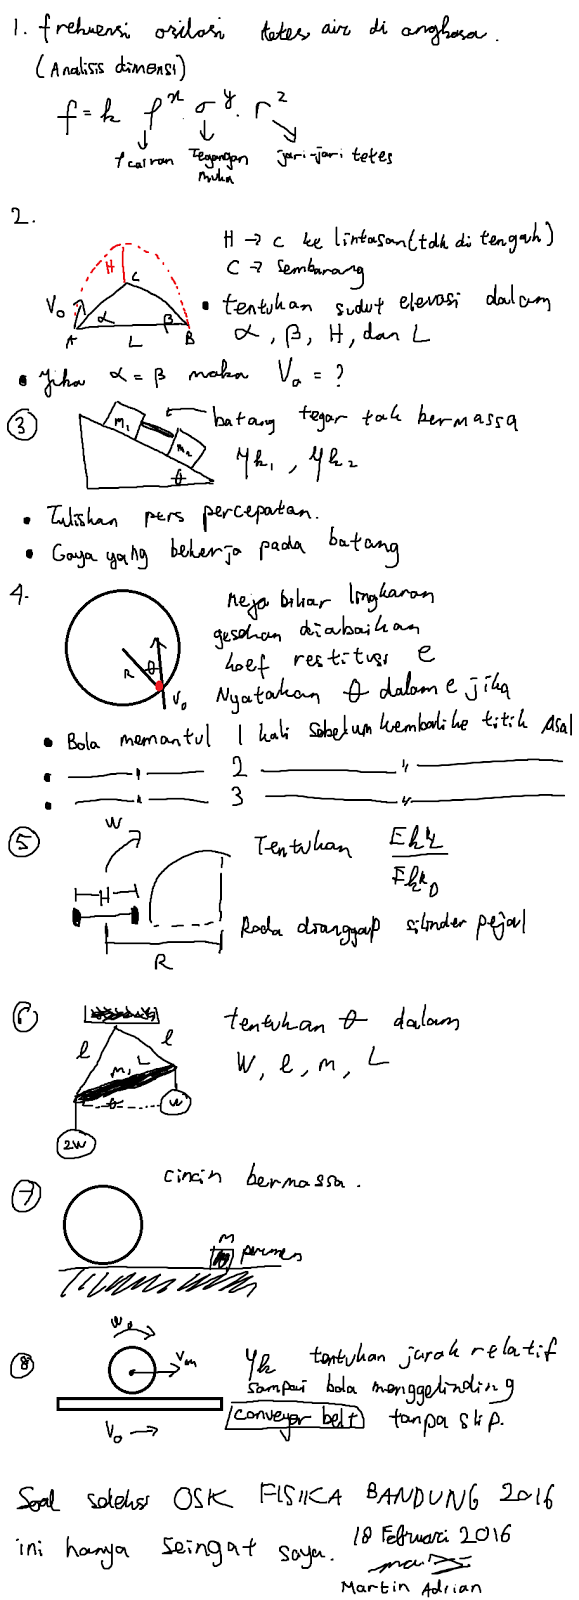 1. frekuensi osilasi tetes air di angkasa.
(Analisis dimensi)
f = k ρ^x . σ^y . r^z
ρ cairan Tegangan muka jari-jari tetes
2.
H → C ke lintasan (tdk di tengah)
C → Sembarang
H
C
V₀
α
β
A
L
B
• tentukan sudut elevasi dalam
α, β, H, dan L
• Jika α = β maka V₀ = ?
③
batang tegar tak bermassa
M₁
M₂
θ
μk₁, μk₂
• Tuliskan pers percepatan.
• Gaya yang bekerja pada batang
4.
Meja biliar lingkaran
gesekan diabaikan
koef restitusi e
Nyatakan θ dalam e jika
R
θ
V₀
• Bola memantul 1 kali sebelum kembali ke titik Asal
• —— " —— 2 —— " ——
• —— " —— 3 —— " ——
⑤
W
Tentukan
H
R
Roda dianggap silinder pejal
⑥
tentukan θ dalam
W, l, m, L
l
l
m, L
θ
W
2W
⑦
cincin bermassa.
M
permen
⑧
W₀
V₀
μk tentukan jarak relatif
sampai bola menggelinding
conveyor belt tanpa slip.
Soal seleksi OSK FISIKA BANDUNG 2016
ini hanya seingat saya.
18 Februari 2016
Martin Adrian